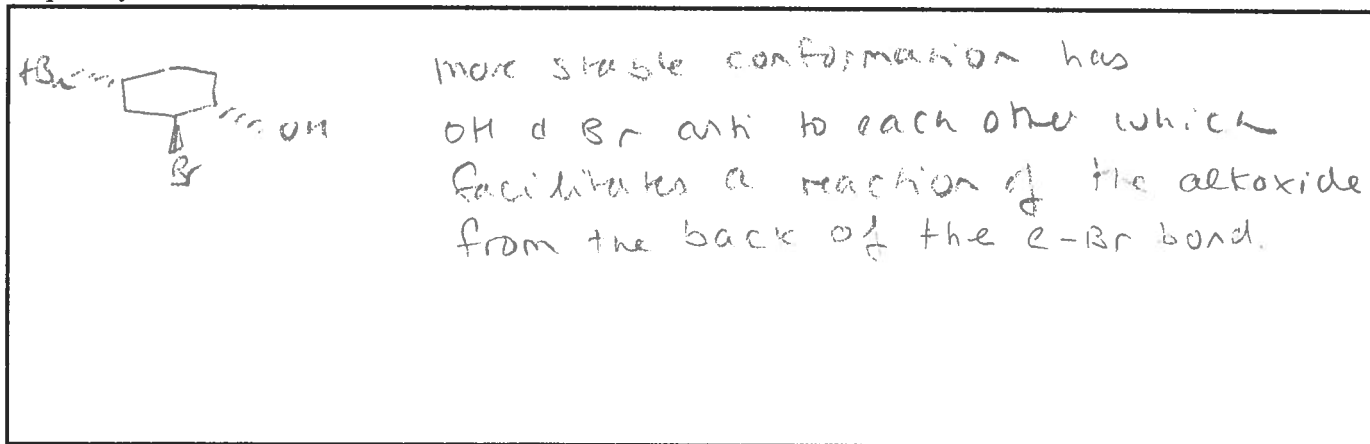 tBu
OH
Br
more stable conformation has
OH & Br anti to each other which
facilitates a reaction of the alkoxide
from the back of the C-Br bond.